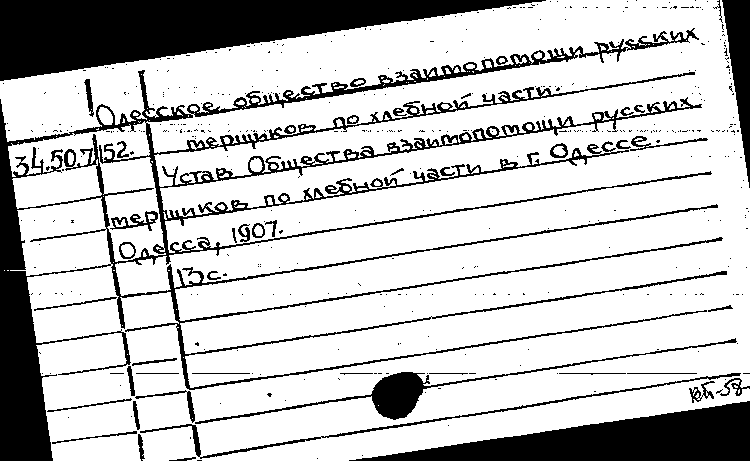 Одесское общество взаимопомощи русских
мерщиков по хлебной части.
34.50.7/152. Устав Общества взаимопомощи русских
мерщиков по хлебной части в г. Одессе.
Одесса, 1907.
13 с.